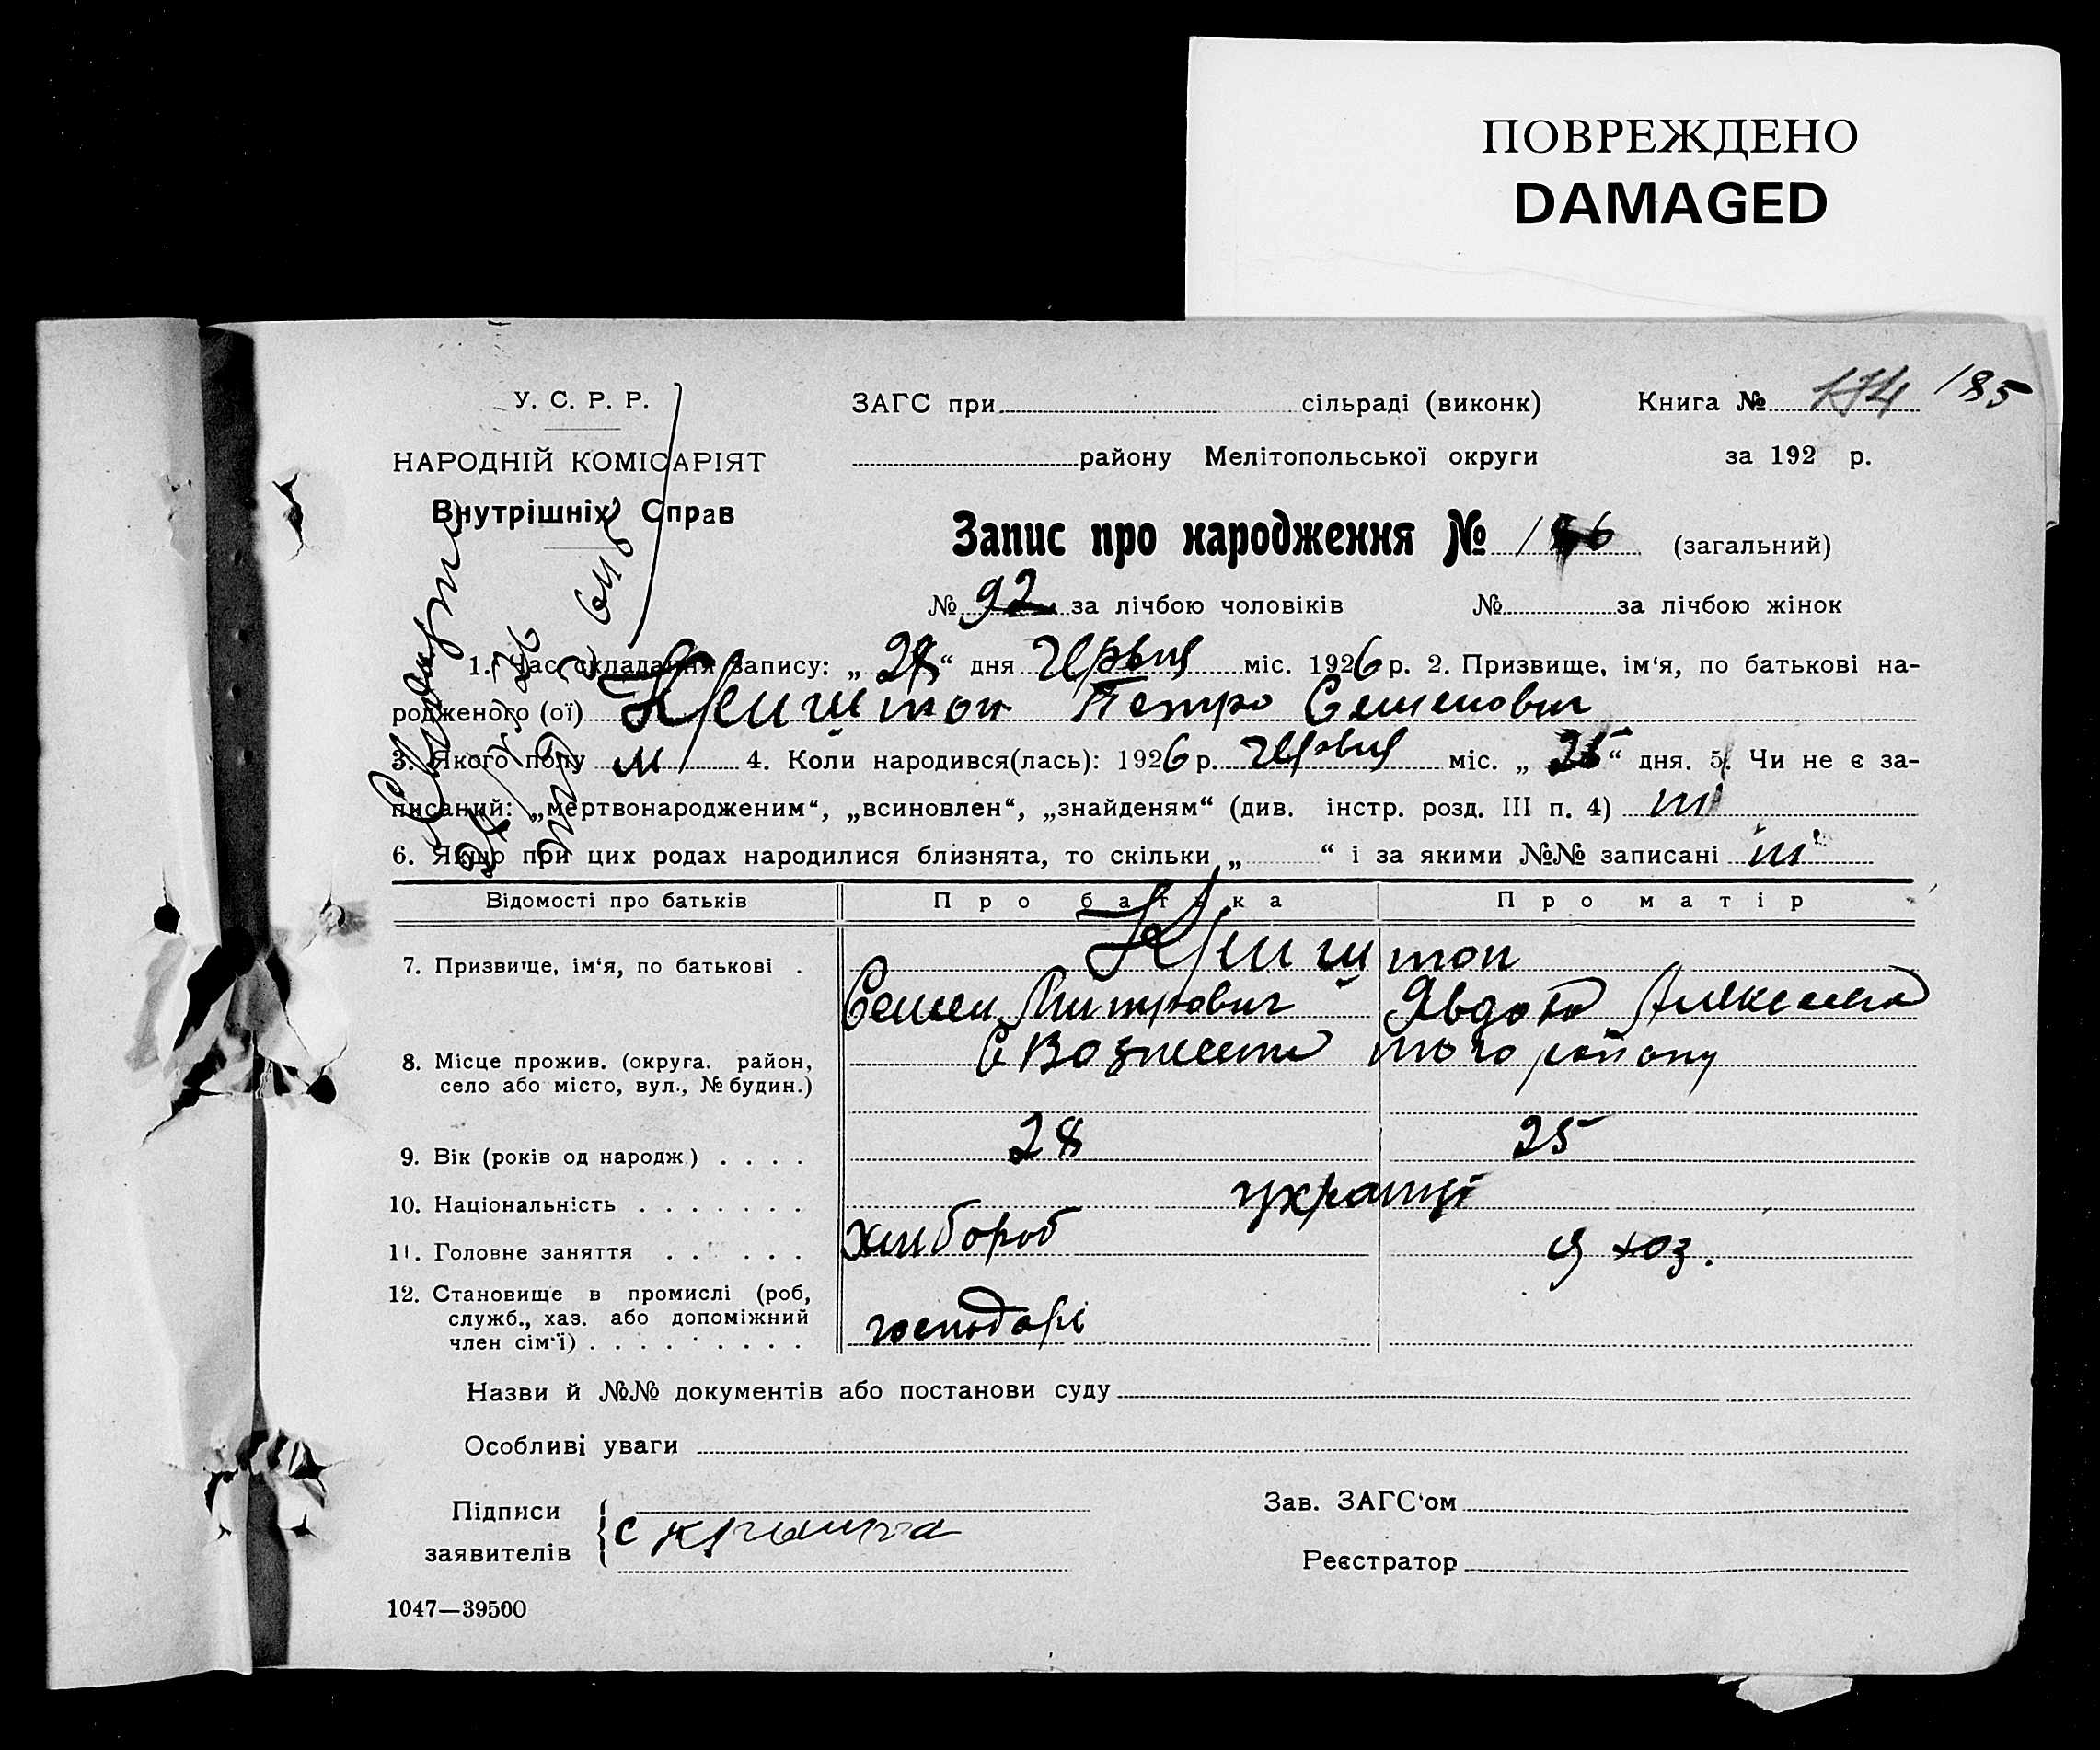 ПОВРЕЖДЕНО
DAMAGED
У. С. Р. Р.
НАРОДНІЙ КОМІСАРІЯТ
Внутрішніх Справ
ЗАГС при сільраді (виконк) Книга № 174 185
району Мелітопольської округи за 192 р.
Запис про народження № (загальний)
№ 92 за лічбою чоловіків № за лічбою жінок
1. Час складання запису: „ 28 “ дня Червця міс. 1926 р. 2. Призвище, ім‘я, по батькові на-
родженого (ої) Петро Семенович
3. Якого полу м 4. Коли народився(лась): 1926 р. Червця міс. „ 25 “ дня. 5. Чи не є за-
писаний: „мертвонародженим“, „всиновлен“, „знайденям“ (див. інстр. розд. III п. 4) ні
6. Якщо при цих родах народилися близнята, то скільки „ “ і за якими №№ записані ні
Відомості про батьків Про батька Про матір
7. Призвище, ім‘я, по батькові .
Семен Митрович Явдоха
8. Місце прожив. (округа. район,
село або місто, вул., № будин.)
С району
9. Вік (років од народж.) . . . . 28 25
10. Національність . . . . . . . українці
11. Головне заняття . . . . . . хлибороб хоз.
12. Становище в промислі (роб,
служб., хаз. або допоміжний
член сім‘ї) . . . . . . . . . господарі
Назви й №№ документів або постанови суду
Особливі уваги
Підписи
заявителів
Зав. ЗАГС‘ом
Реєстратор
1047—39500